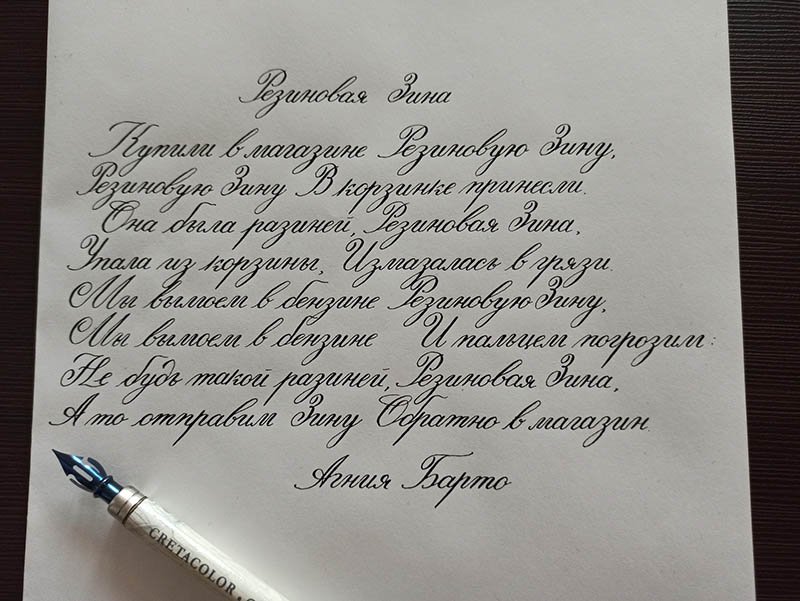 Резиновая Зина
Купили в магазине Резиновую Зину,
Резиновую Зину В корзинке принесли.
Она была разиней, Резиновая Зина,
Упала из корзины, Измазалась в грязи.
Мы вымоем в бензине Резиновую Зину,
Мы вымоем в бензине И пальцем погрозим:
Не будь такой разиней, Резиновая Зина,
А то отправим Зину Обратно в магазин.
Агния Барто
CRETACOLOR.